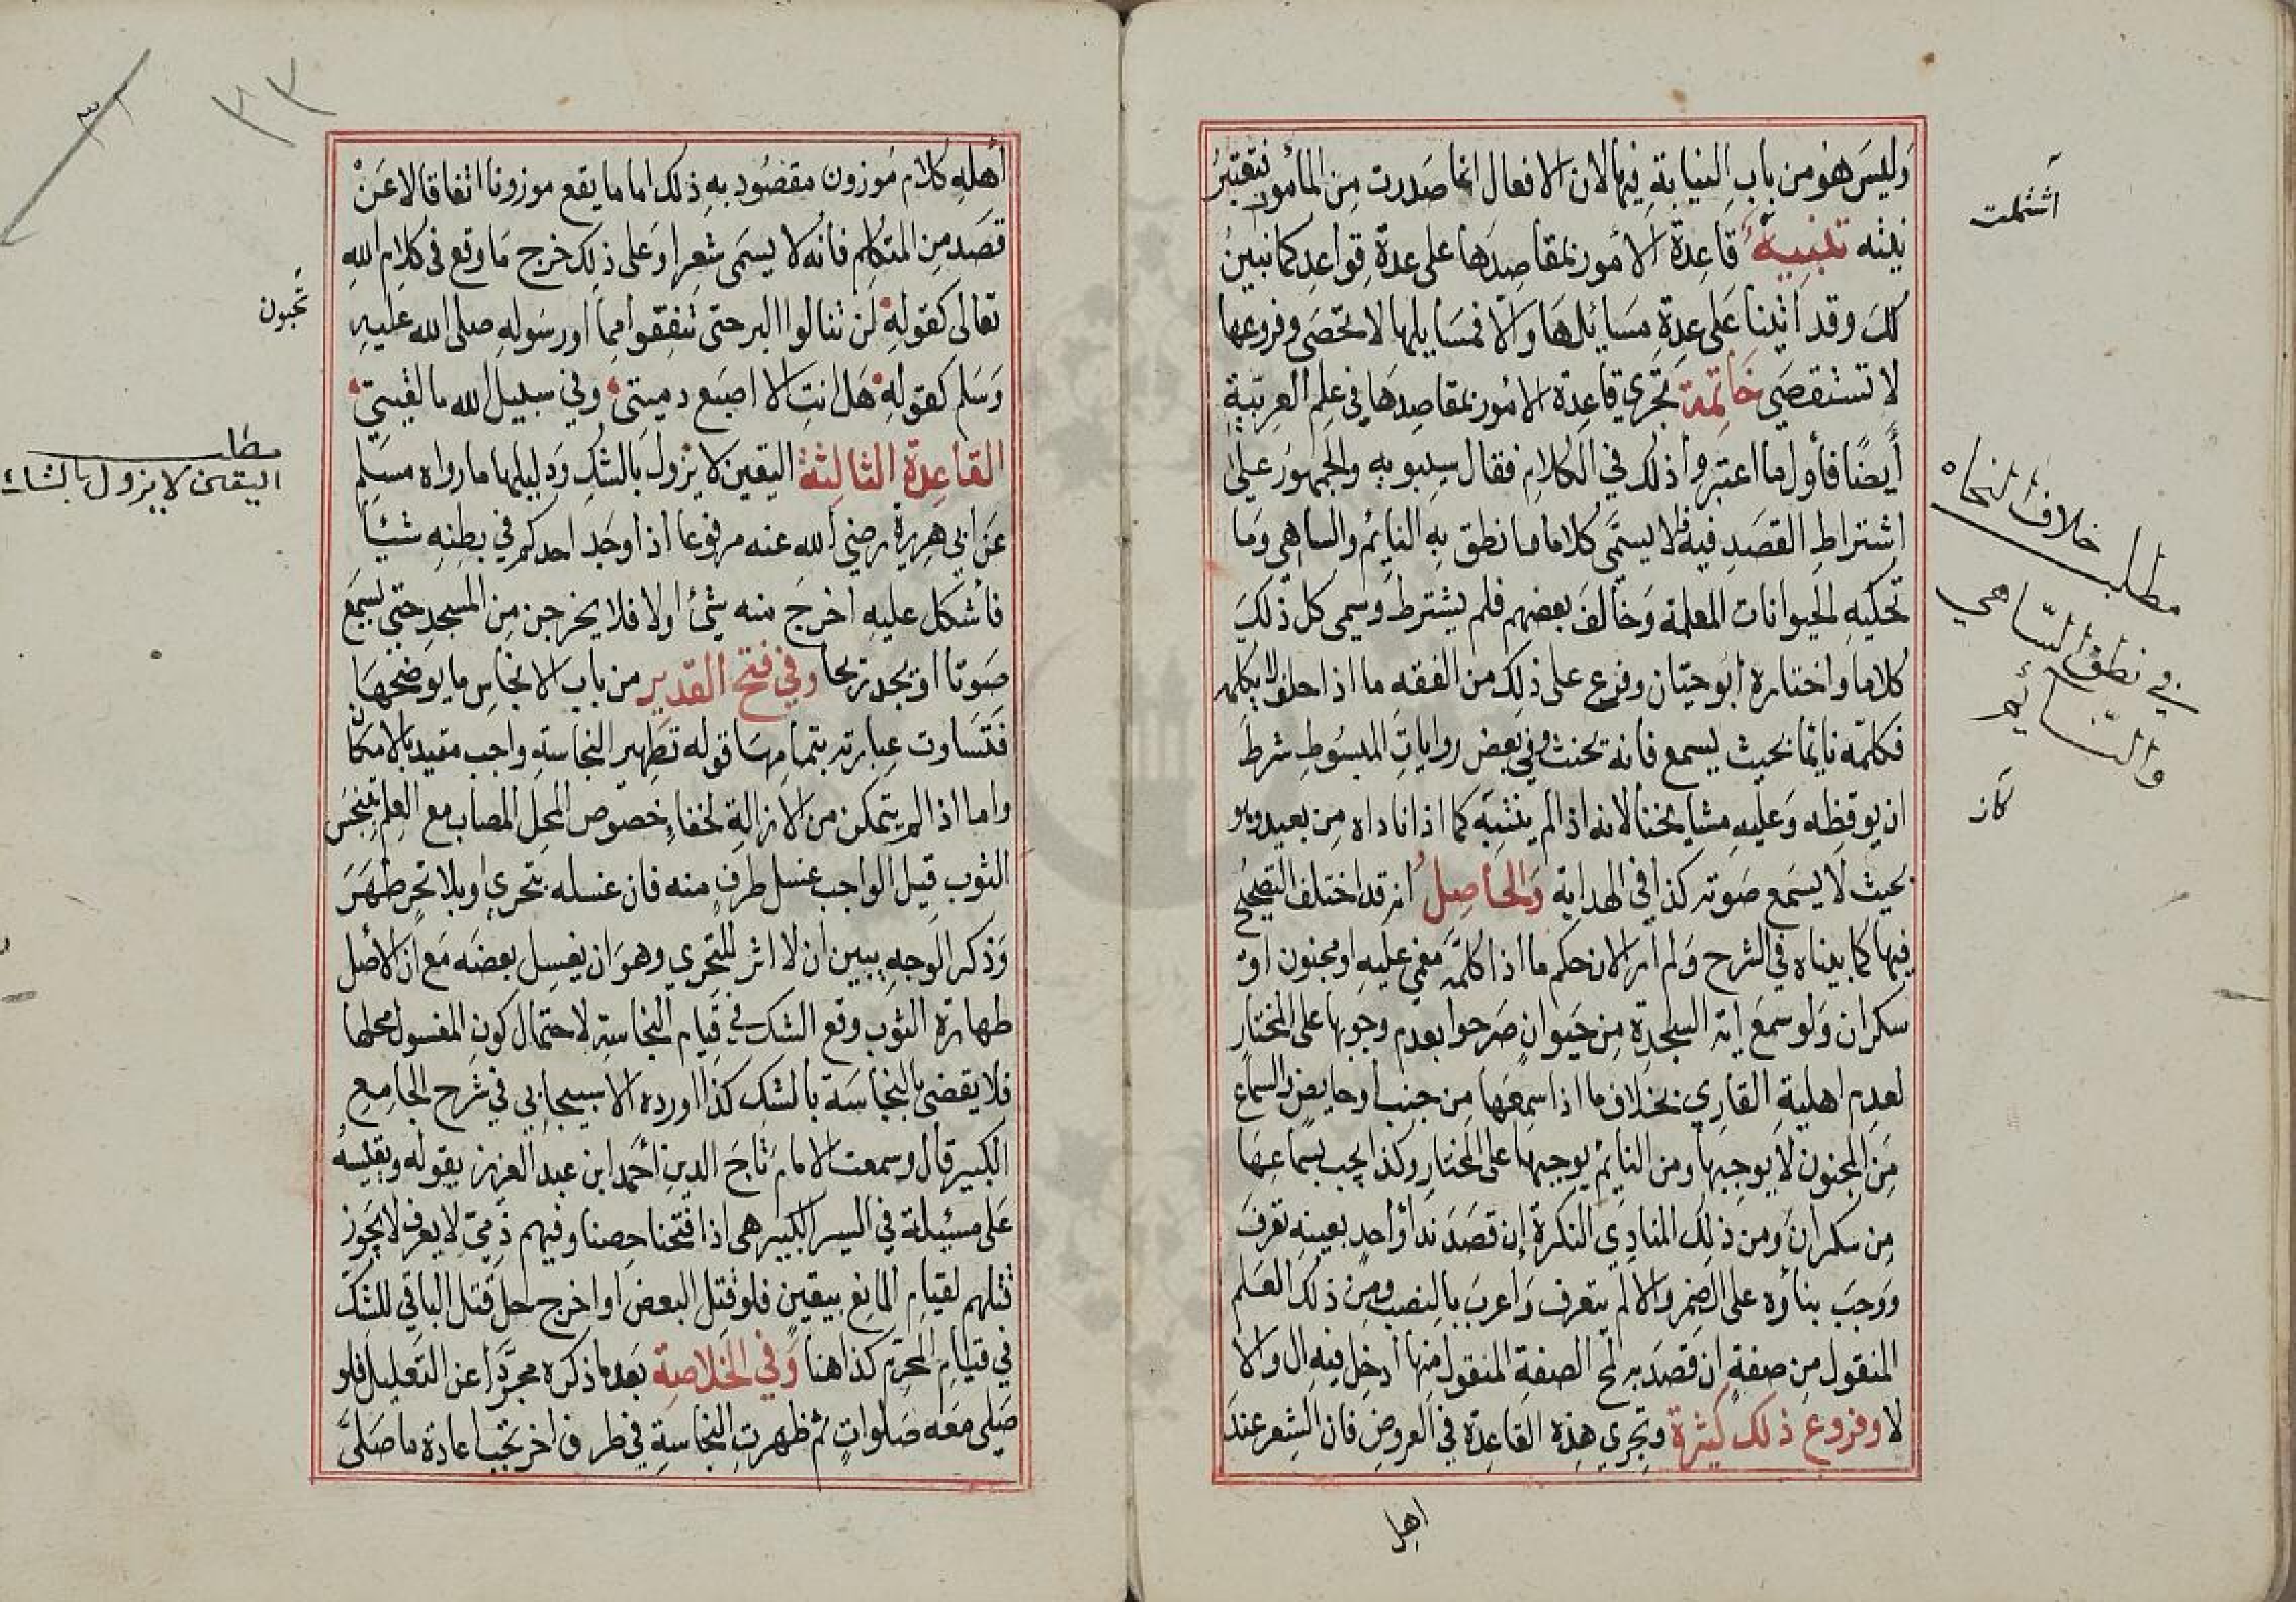 وليس هو من باب النيابة فيها لان الافعال انما صدرت من المأمور فتعتبر
نيته تنبيه قاعدة الامور بمقاصدها على عدة قواعد كما نبين
لك وقد اتينا على عدة مسائلها والا فمسايلها لا تحصى وفروعها
لا تستقصى خاتمة تجري قاعدة الامور بمقاصدها في علم العربية
أيضًا فأول ما اعتبروا ذلك في الكلام فقال سيبويه والجمهور على
اشتراط القصد فيه فلا يسمى كلاما ما نطق به النائم والساهي وما
تحكيه الحيوانات المعلمة وخالف بعضهم فلم يشترط وسمى كل ذلك
كلاما واختاره ابو حيان وفرع على ذلك من الفقه ما اذا حلف لا يكلمه
فكلمه نايما بحيث يسمع فانه يحنث وفي بعض روايات المبسوط شرط
ان يوقظه وعليه مشايخنا لانه اذ الم ينتبه كما اذا ناداه من بعيد وهو
بحيث لا يسمع صوته كذا في الهداية والحاصل انه قد اختلف التصحيح
فيها كما بيناه في الشرح ولم ار الان حكم ما اذا كلمه مغمى عليه او مجنون او
سكران ولو سمع اية السجدة من حيوان صرحوا بعدم وجوبها على المختار
لعدم اهلية القاري بخلاف ما اذا سمعها من جنب او حايض والسماع
من المجنون لا يوجبها ومن النائم يوجبها على المختار وكذا يجب بسماعها
من سكران ومن ذلك المنادي النكرة إن قصد ندا واحد بعينه تعرف
ووجب بناؤه على الضم والا لم يتعرف واعرب بالنصب ومن ذلك العلم
المنقول من صفة ان قصد به لمح الصفة المنقول منها أدخل فيه ال والا
لا وفروع ذلك كثيرة وتجري هذه القاعدة في العروض فان الشعر عند
اهل
اشتملت
مطلب خلاف النحاه
في نطق الساهي
والنايم
كان
أهله كلام موزون مقصود به ذلك اما ما يقع موزونا اتفاقا لا عن
قصد من المتكلم فانه لا يسمى شعرا وعلى ذلك خرج ما وقع في كلام الله
تعالى كقوله لن تنالوا البر حتى تنفقوا مما او رسوله صلى الله عليه
وسلم كقوله هل انت الا اصبع دميتي وفي سبيل الله ما لقيتي
القاعدة الثالثة اليقين لا يزول بالشك ودليلها ما رواه مسلم
عن ابي هريرة رضي الله عنه مرفوعا اذا وجد احدكم في بطنه شيئا
فأشكل عليه اخرج منه شئ اولا فلا يخرجن من المسجد حتى يسمع
صوتا او يجد ريحا وفي فتح القدير من باب الانجاس ما يوضحها
فتساوت عبارته بتمامها قوله تطهير النجاسة واجب مقيد بالامكان
واما اذا لم يتمكن من الازالة لخفاء خصوص المحل المصاب مع العلم بتنجس
الثوب قيل الواجب غسل طرف منه فان غسله بتحري او بلا تحر طهر
وذكر الوجه يبين ان لا اثر للتحري وهو ان يغسل بعضه مع ان الاصل
طهارة الثوب وقع الشك في قيام النجاسة لاحتمال كون المغسول محلها
فلا يقضى بالنجاسة بالشك كذا اورده الاسبيجابي في شرح الجامع
الكبير قال وسمعت الامام تاج الدين أحمد ابن عبد العزيز يقوله ويقيسه
على مسئلة في السير الكبير هي اذا فتحنا حصنا وفيهم ذمي لا يعرف لا يجوز
قتلهم لقيام المانع بيقين فلو قتل البعض او اخرج حل قتل الباقي للشك
في قيام المحرم كذا هنا وفي الخلاصة بعد ما ذكره مجردًا عن التعليل فلو
صلى معه صلوات ثم ظهرت النجاسة في طرف اخر تجب اعادة ما صلى
تحبون
مطلب
اليقين لا يزول بالشك
٣٣